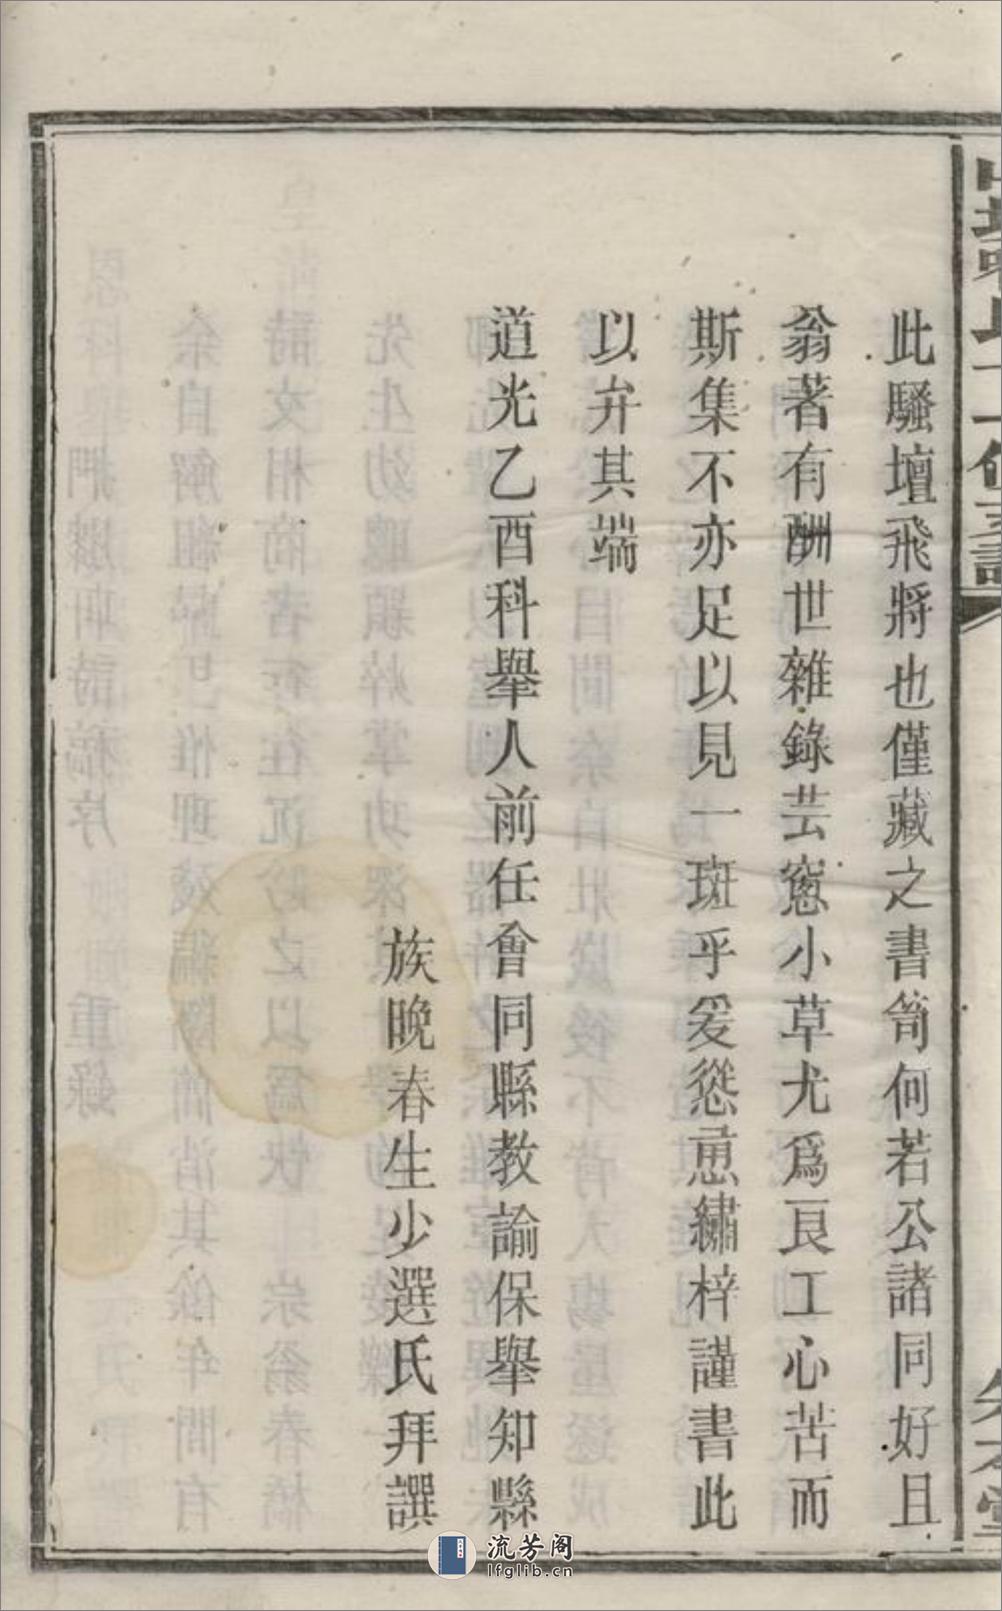 此騷壇飛將也僅藏之書笥何若公諸同好且
翁著有酬世雜錄芸窻小草尤爲良工心苦而
斯集不亦足以見一斑乎爰慫恿繡梓謹書此
以弁其端
道光乙酉科舉人前任會同縣教諭保舉知縣
族晚春生少選氏拜譔
流芳阁
lfglib.cn